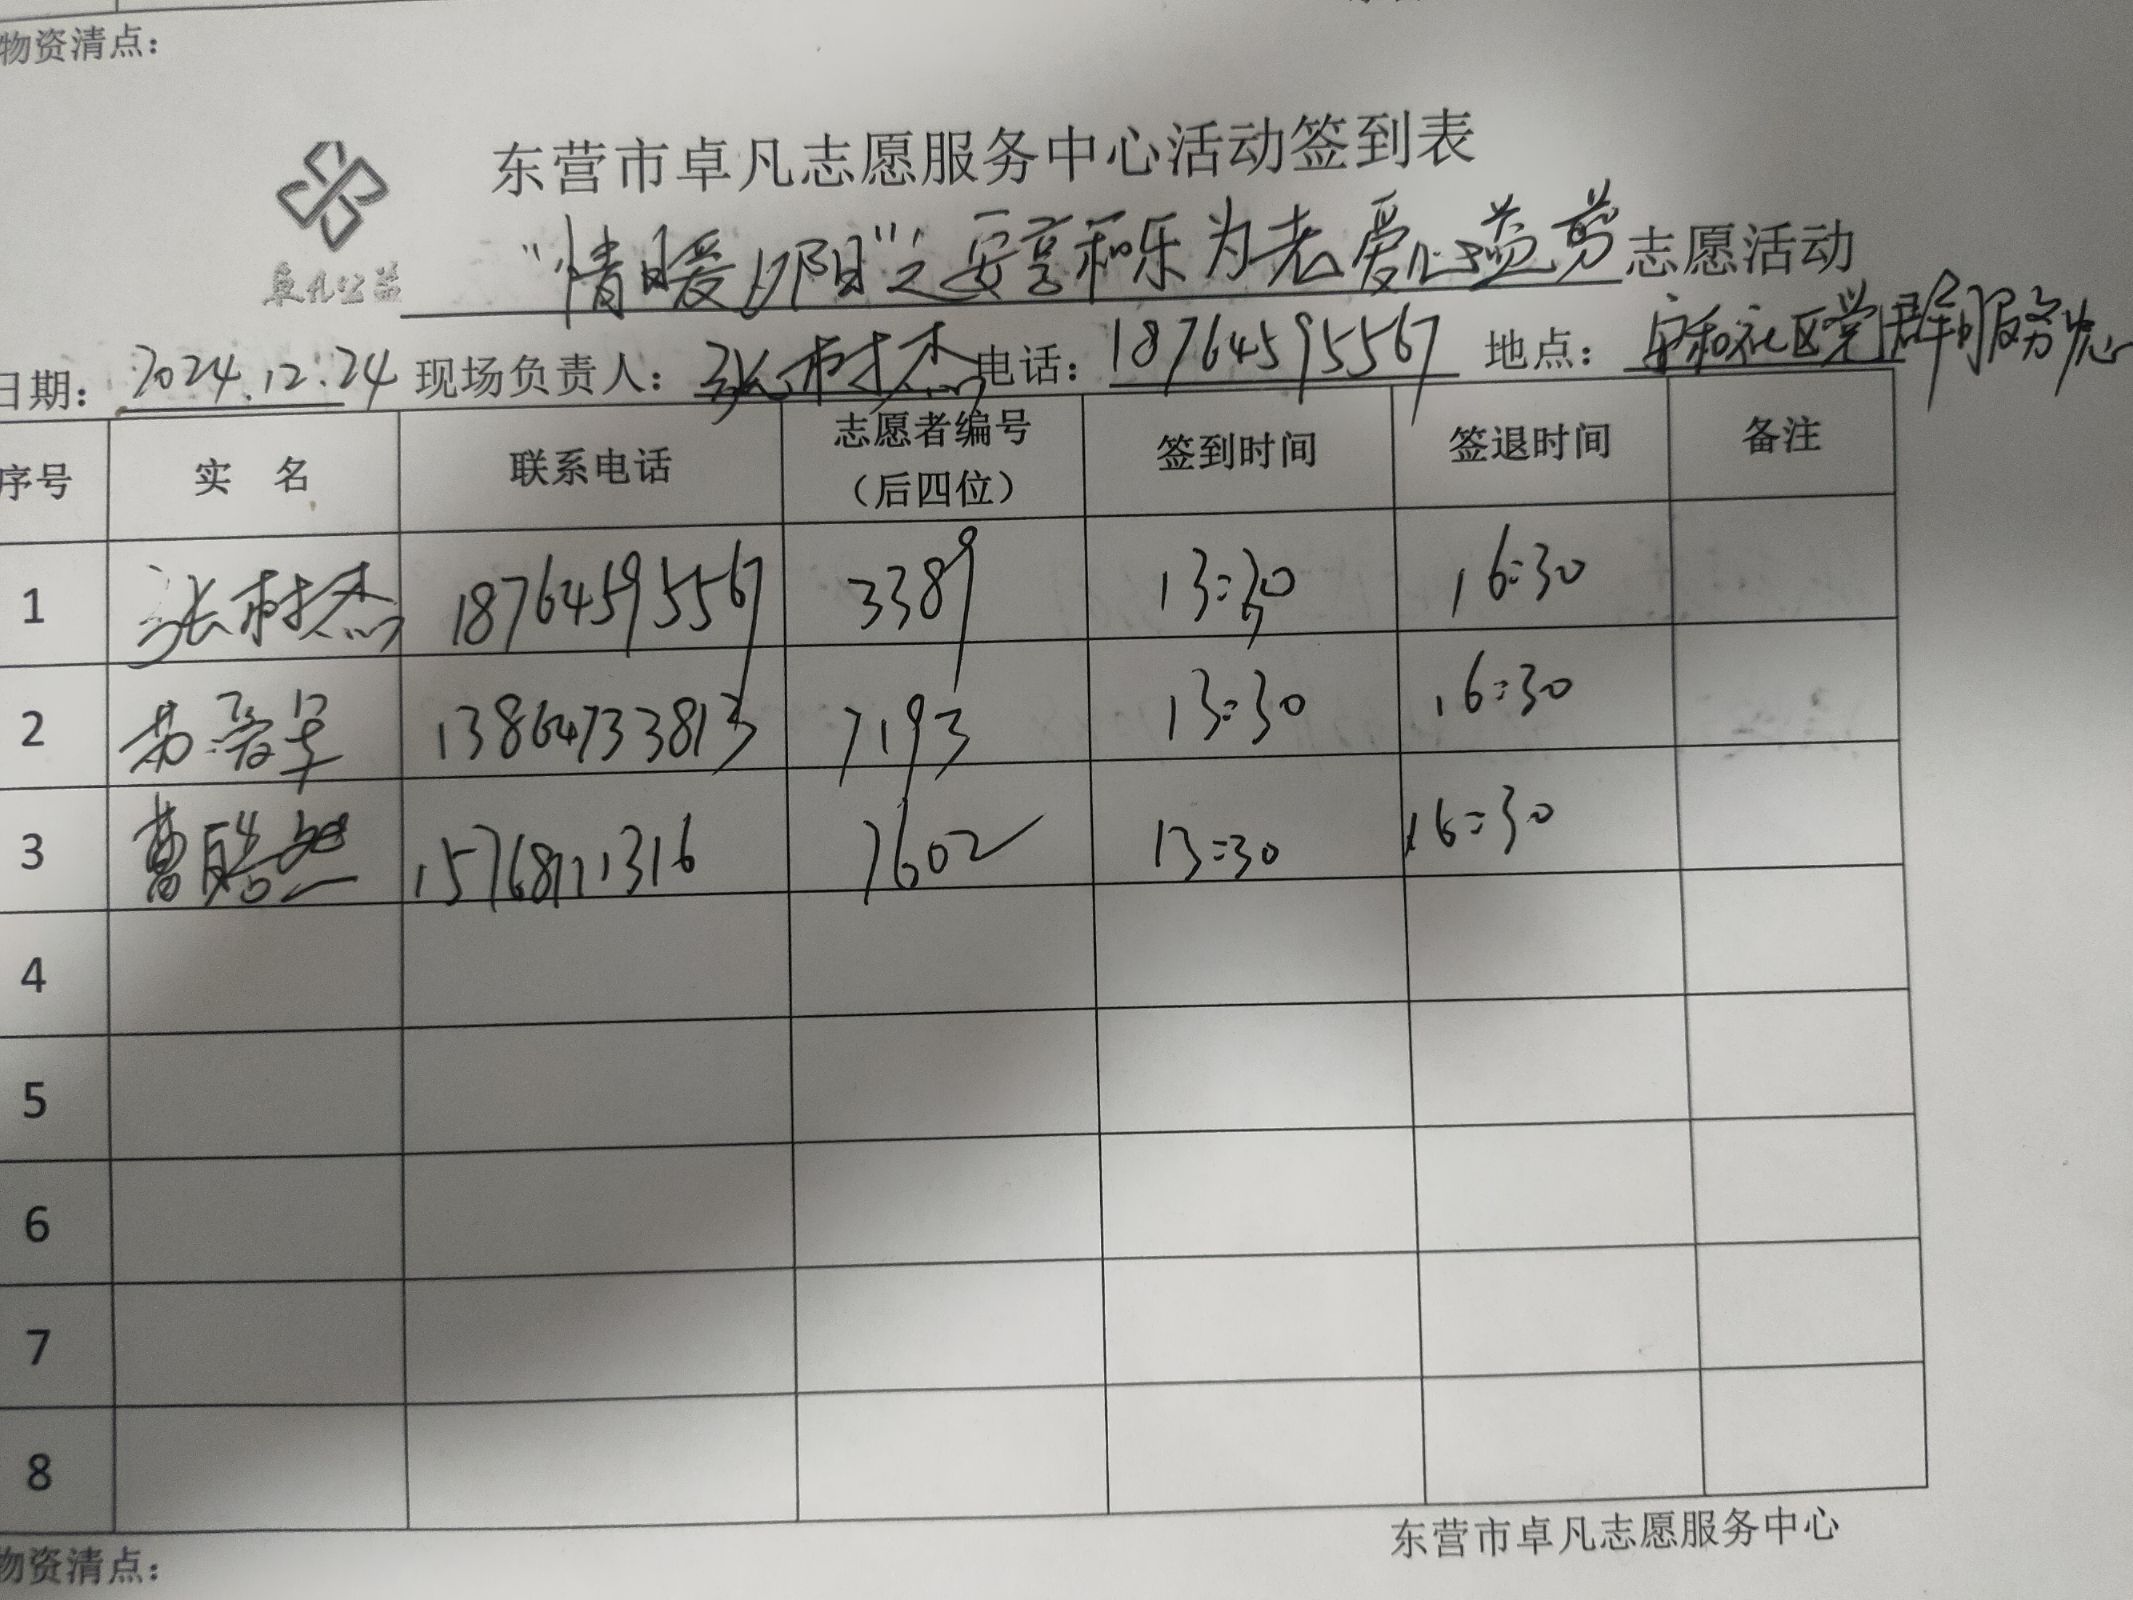 物资清点：
东营市卓凡志愿服务中心活动签到表
卓凡公益
“情暖夕阳”之安享和乐为老爱心益剪志愿活动
日期：2024.12.24 现场负责人：张树杰 电话：18764595567 地点：安和社区党群服务中心
序号 实 名 联系电话 志愿者编号（后四位） 签到时间 签退时间 备注
1 张树杰 18764595567 3389 13:30 16:30
2 13864733813 7193 13:30 16:30
3 曹皓 15768711316 7602 13:30 16:30
4
5
6
7
8
东营市卓凡志愿服务中心
物资清点：